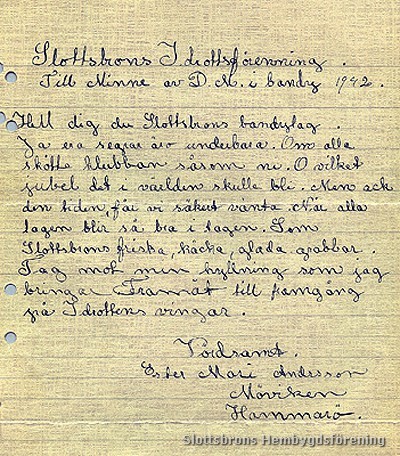 Slottsbrons Idrottsförenning.
Till Minne av D.M. i bandy 1942.
Hell dig du Slottsbrons bandylag.
Ja era segrar äro underbara. Om alla
skötte klubban såsom ni. O vilket
jubel det i världen skulle bli. Men ack
den tiden, får vi säkert vänta. När alla
lagen blir så bra i tagen. Som
Slottsbrons friska, käcka, glada grabbar.
Tag mot min hyllning som jag
bringar Framåt till framgång
på Idrottens vingar.
Vördsamt.
Ester Mari Andersson
Möviken
Hammarö.
Slottsbrons Hembygdsförening